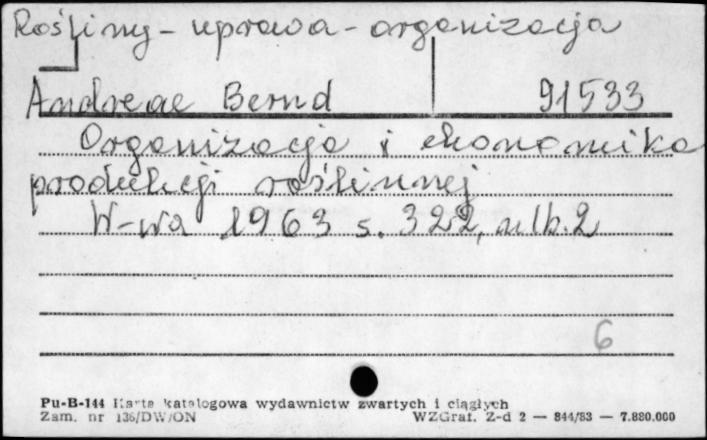 Rośliny - uprawa - organizacja
Andreae Bernd 91533
Organizacja i ekonomika
produkcji roślinnej
W-wa 1963 s. 322, nlb. 2
6
Pu-B-144 Karta katalogowa wydawnictw zwartych i ciągłych
Zam. nr 136/DW/ON WZGraf. Z-d 2 — 844/83 — 7.880.000